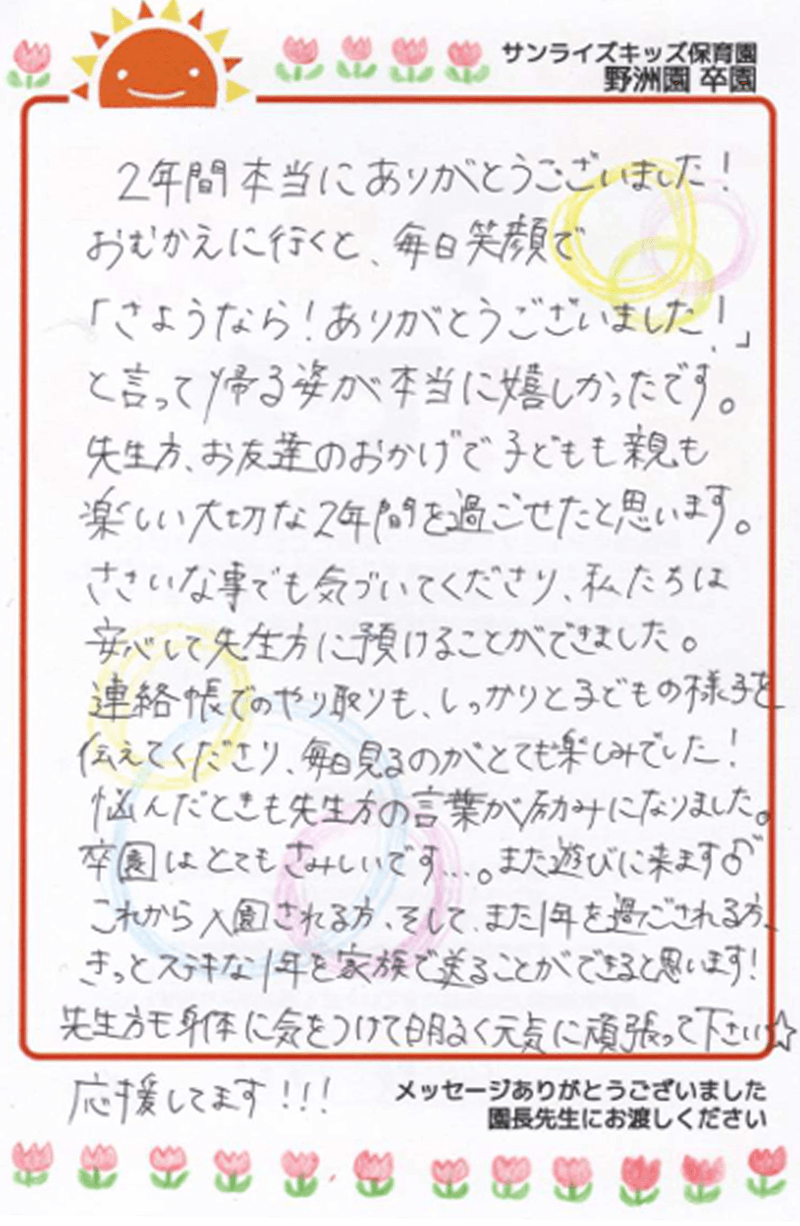 サンライズキッズ保育園
野洲園 卒園
2年間本当にありがとうございました!
おむかえに行くと、毎日笑顔で
「さようなら!ありがとうございました!」
と言って帰る姿が本当に嬉しかったです。
先生方、お友達のおかげで子どもも親も
楽しい大切な2年間を過ごせたと思います。
ささいな事でも気づいてくださり、私たちは
安心して先生方に預けることができました。
連絡帳でのやり取りも、しっかりと子どもの様子を
伝えてくださり、毎日見るのがとても楽しみでした!
悩んだときも先生方の言葉が励みになりました。
卒園はとてもさみしいです...。また遊びに来ます
これから入園される方、そして、また1年を過ごされる方、
きっとステキな1年を家族で送ることができると思います!
先生方も身体に気をつけて明るく元気に頑張って下さい☆
応援してます!!!
メッセージありがとうございました
園長先生にお渡しください